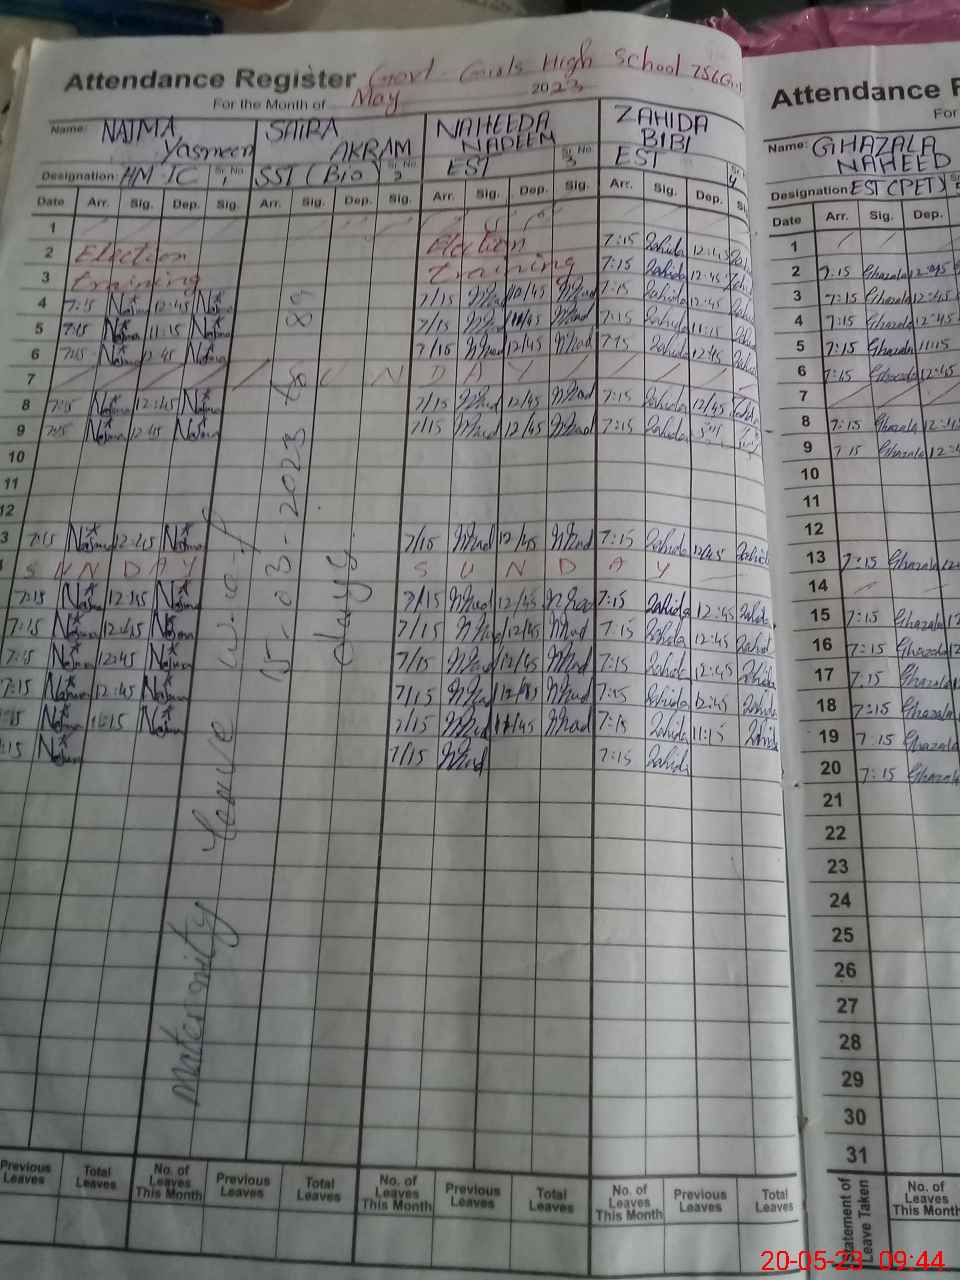 Attendance Register Govt. Girls High School 756
For the Month of May 2023
Name: NAJMA Yasmeen SAIRA AKRAM NAHEEDA NADEEM ZAHIDA BIBI
Designation: HM-IC Sr. No 1 SST (Bio) Sr. No 2 EST Sr. No 3 EST 4
Date Arr. Sig. Dep. Sig. Arr. Sig. Dep. Sig. Arr. Sig. Dep. Sig. Arr. Sig. Dep.
1
2 Election Election 7:15 Zahida 12:45
3 training training 7:15 Zahida 12:45
4 7:15 Najma 12:45 Najma 7/15 7:15 Zahida 12:45
5 7:15 Najma 11:15 Najma 7/15 7:15 Zahida 11:15
6 7:15 Najma 12:45 Najma 7/15 12/45 7:15 Zahida 12:45
7 S U N D A Y
8 7:15 Najma 12:45 Najma 7/15 12/45 7:15 Zahida 12/45
9 7:15 Najma 12:45 Najma 7/15 12/45 7:15 Zahida
10
11
12
3 7:15 Najma 12:45 Najma 7/15 12/45 7:15 Zahida 12:45 Zahida
S U N D A Y S U N D A Y
7:15 Najma 12:45 Najma 7/15 12/45 7:15 Zahida 12:45 Zahida
7:15 Najma 12:45 Najma 7/15 12/45 7:15 Zahida 12:45 Zahida
7:15 Najma 12:45 Najma 7/15 12/45 7:15 Zahida 12:45 Zahida
7:15 Najma 12:45 Najma 7/15 7:15 Zahida 12:45 Zahida
:15 Najma 11:15 Najma 7/15 11/45 7:15 Zahida 11:15 Zahida
:15 Najma 7/15 7:15 Zahida
Maternity Leave w-e-f
15-03-2023 to 89
days
Previous Leaves Total Leaves No. of Leaves This Month Previous Leaves Total Leaves No. of Leaves This Month Previous Leaves Total Leaves No. of Leaves This Month Previous Leaves Total Leaves
Attendance
For
Name: GHAZALA NAHEED
Designation EST (PET)
Date Arr. Sig. Dep.
1
2 7:15 Ghazala 12:45
3 7:15 Ghazala 12:45
4 7:15 Ghazala 12:45
5 7:15 Ghazala 11:15
6 7:15 Ghazala 12:45
7
8 7:15 Ghazala
9 7:15 Ghazala
10
11
12
13 7:15 Ghazala
14
15 7:15 Ghazala
16 7:15 Ghazala
17 7:15 Ghazala
18 7:15 Ghazala
19 7:15 Ghazala
20 7:15 Ghazala
21
22
23
24
25
26
27
28
29
30
31
Statement of Leave Taken
No. of Leaves This Month
20-05-23 09:44